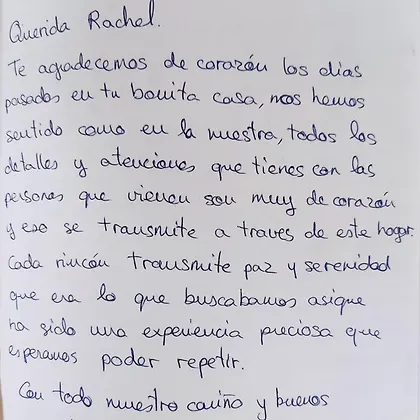 Querida Rachel.
Te agradecemos de corazón los dias
pasados en tu bonita casa, nos hemos
sentido como en la nuestra, todos los
detalles y atenciones que tienes con las
personas que vienen son muy de corazón
y eso se transmite a traves de este hogar.
Cada rincón transmite paz y serenidad
que era lo que buscabamos asique
ha sido una experiencia preciosa que
esperamos poder repetir.
Con todo nuestro cariño y buenos